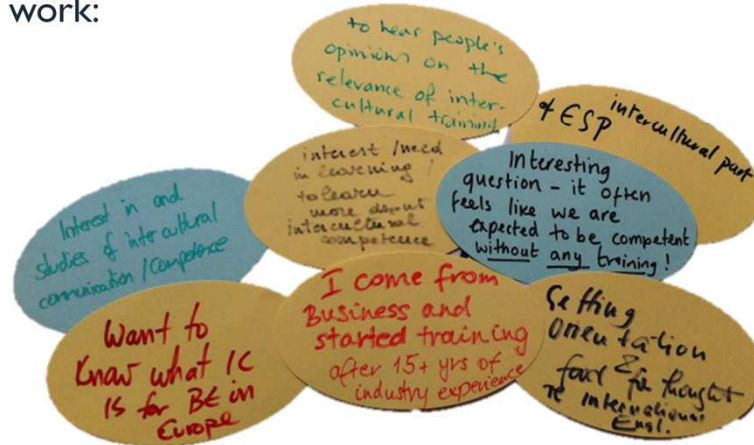 work:
to hear people's
opinions on the
relevance of inter-
cultural training
intercultural part
of ESP
interest / need
in learning !
to learn
more about
intercultural
competence
Interesting
question - it often
feels like we are
expected to be competent
without any training!
Interest in and
studies of intercultural
communication / Competence
Want to
know what IC
is for BE in
Europe
I come from
Business and
started training
after 15+ yrs of
industry experience
Getting
orientation
& food for thought
re international
Engl.